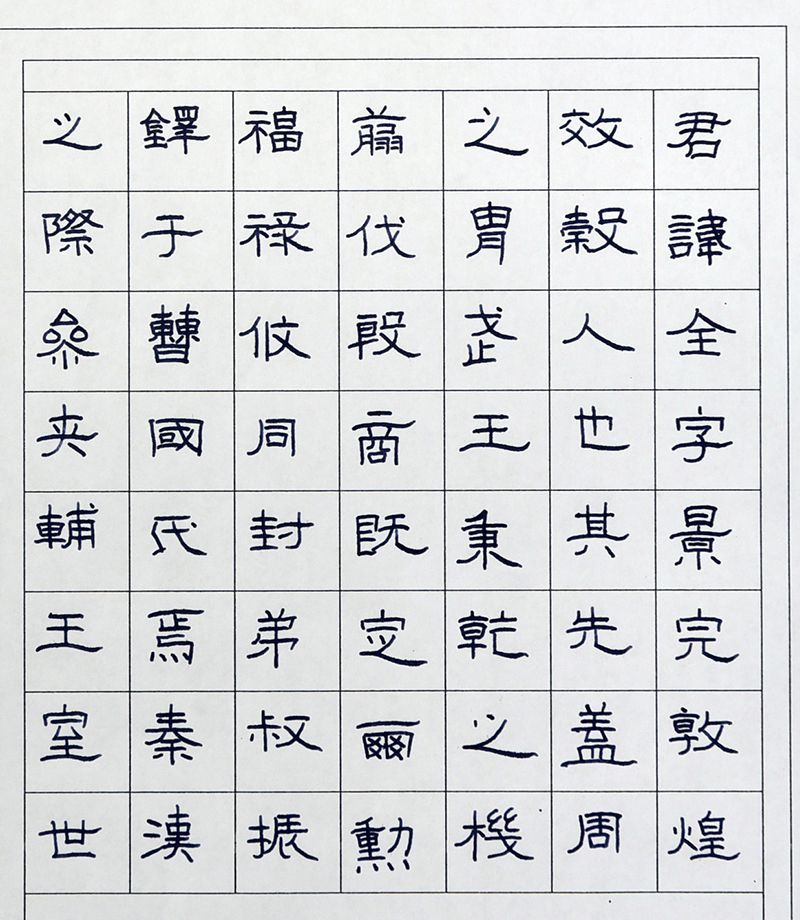 君諱全字景完敦煌
效穀人也其先蓋周
之胄武王秉乾之機
翦伐殷商既定爾勳
福祿攸同封弟叔振
鐸于曹國氏焉秦漢
之際曹參夾輔王室世